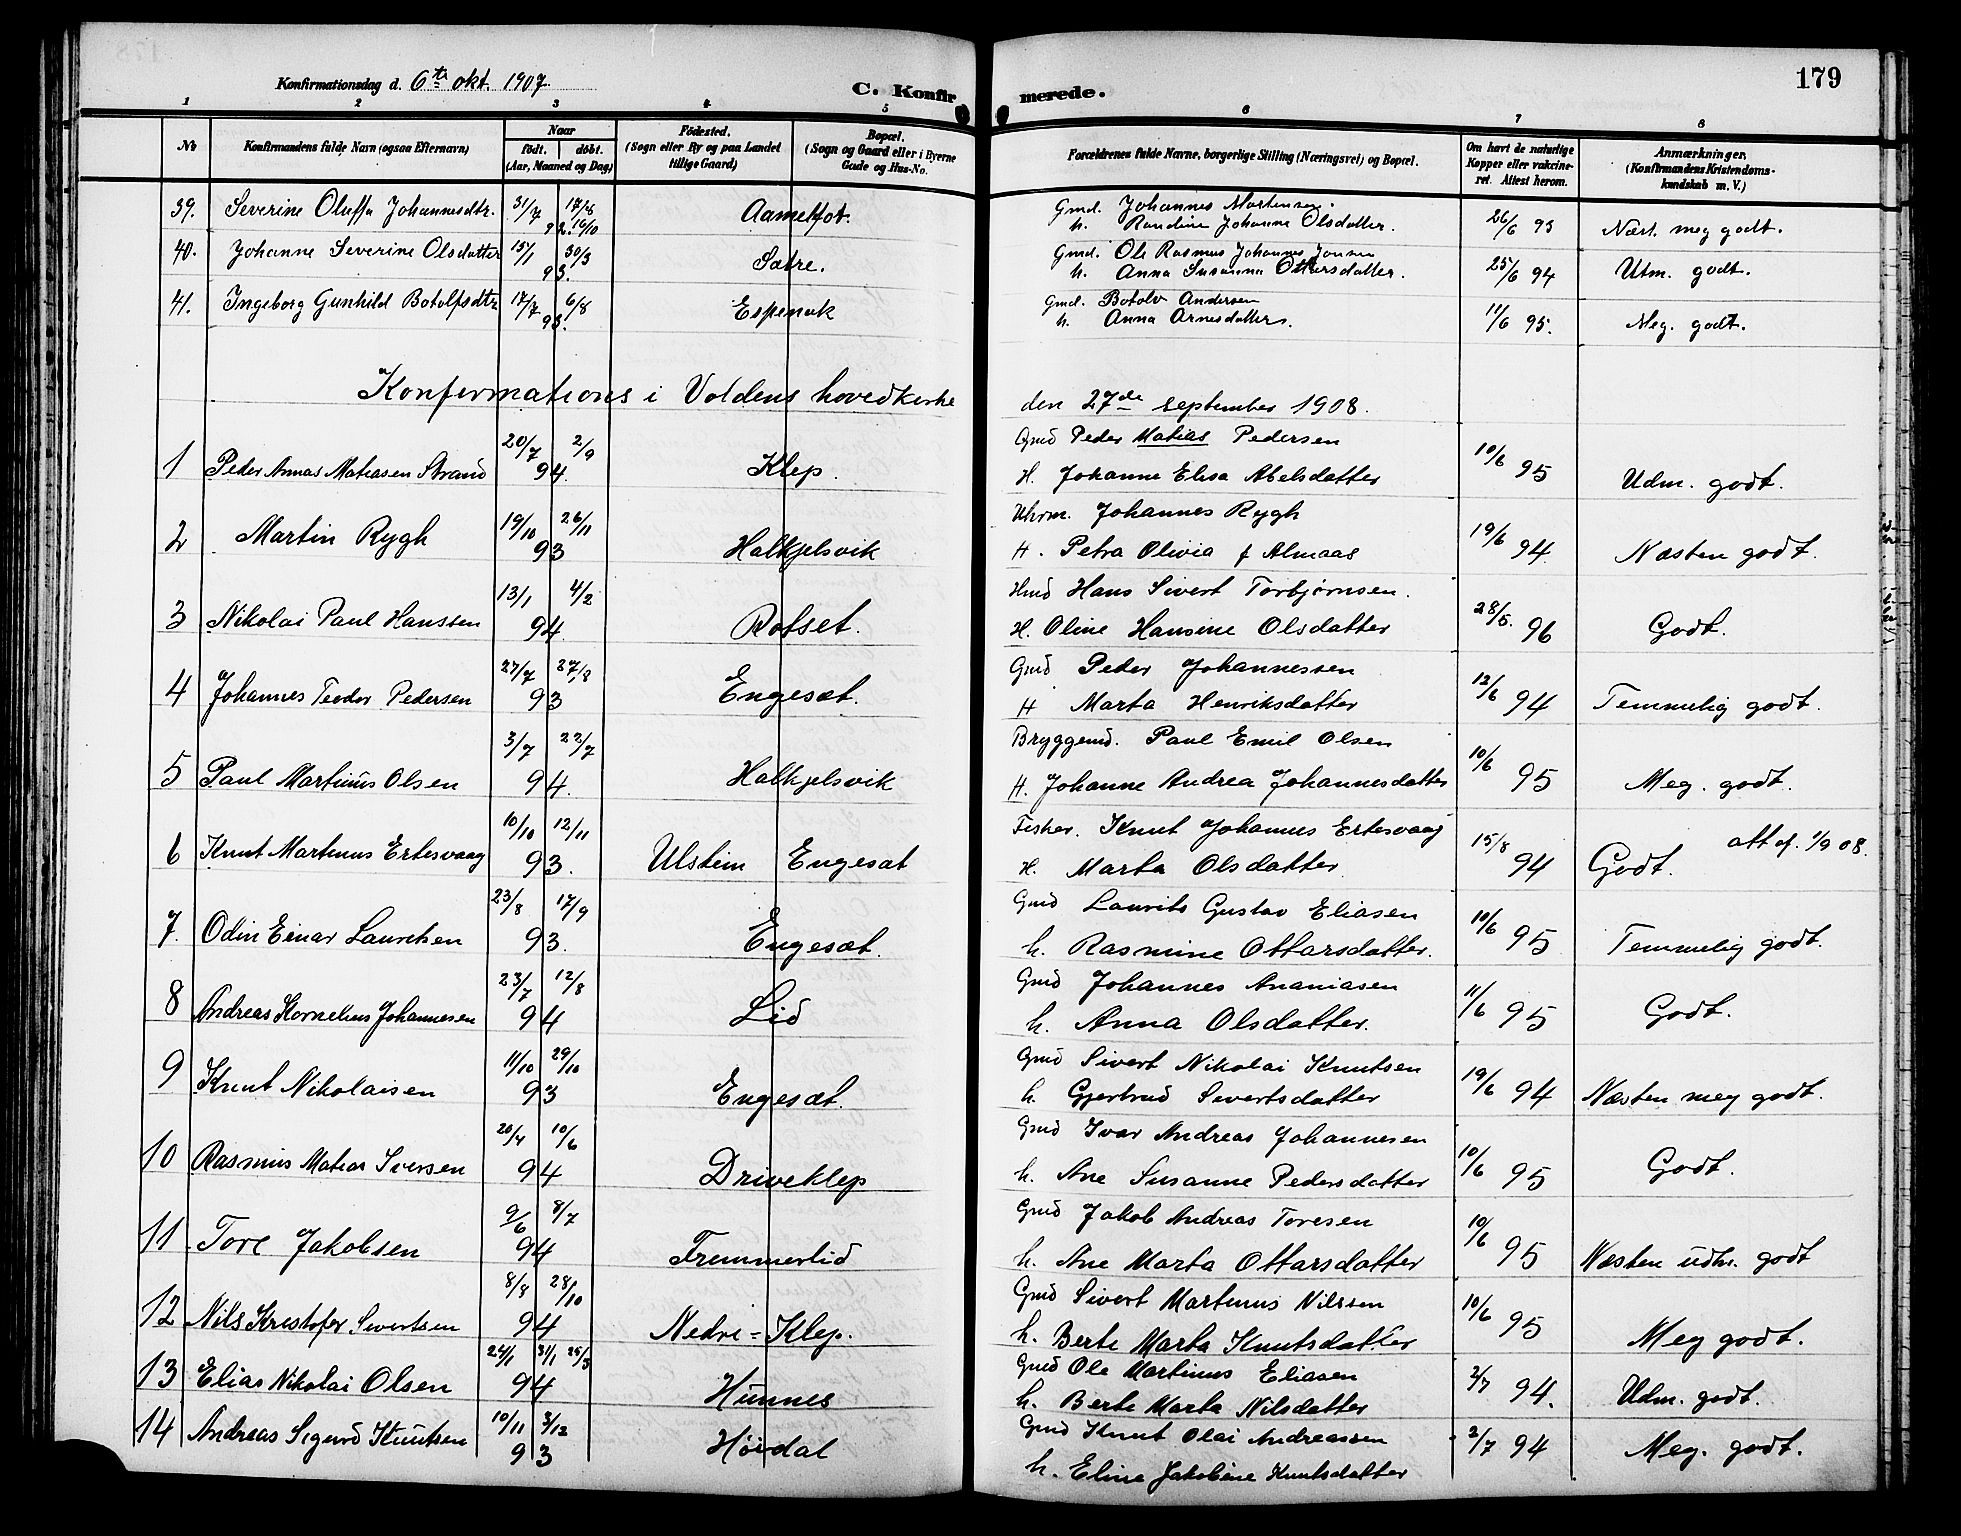 179
Konfirmationsdag d. 6te okt. 1907
C. Konfirmerede.
1 2 3 4 5 6 7 8
No
Konfirmandens fulde Navn (ogsaa Efternavn)
Naar
født. døbt.
(Aar, Maaned og Dag)
Fødested.
(Sogn eller By og paa Landet
tillige Gaard)
Bopæl.
(Sogn og Gaard eller i Byerne
Gade og Hus-No.
Forældrenes fulde Navne, borgerlige Stilling (Næringsvei) og Bopæl.
Om havt de naturlige
Kopper eller vakcine-
ret. Attest herom.
Anmærkninger.
(Konfirmandens Kristendoms-
kundskab m. V.)
39. Severine Oluffa Johannesdtr. 31/7 17/8 92. 16/10 Aamelfot. Gmd. Johannes Martensen. 26/6 93 Næst. meg godt.
h. Randine Johanne Olsdatter.
40. Johanne Severine Olsdatter 15/1 30/3 93. Sætre. Gmd. Ole Rasmus Johannes Jonsen 25/6 94 Utm. godt.
h. Anna Susanna Ottersdatter.
41. Ingeborg Gunhild Botolfsdtr 17/7 6/8 93. Espenak Gmd. Botolv Andersen 11/6 95. Meg. godt.
h. Anna Arnesdatter.
Konfermations i Voldens hovedkirke den 27de september 1908.
1 Peder Annas Matiasen Strand 20/7 2/9 94. Klep. Gmd Peder Matias Pedersen 10/6 95 Udm. godt.
H. Johanne Elisa Abelsdatter
2 Martin Rygh 19/10 26/11 93 Halkjelsvik Uhrm. Johannes Rygh 19/6 94. Næsten godt.
H. Petra Olivia f Almaas
3 Nikolai Paul Hanssen 13/1 4/2 94. Rotset. Hmd Hans Sivert Torbjørnsen. 28/5. 96 Godt.
H. Oline Hansine Olsdatter
4 Johannes Teodor Pedersen 27/7 27/8 93 Engesæt. Gmd Peder Johannessen 12/6 94 Temmelig godt.
H Marta Henriksdatter
5 Paul Martinus Olsen 3/7 22/7 94. Halkjelsvik Bryggemd. Paul Emil Olsen 10/6 95 Meg. godt.
H. Johanne Andrea Johannesdatter
6 Knut Martinus Ertesvaag 10/10 12/11 93. Ulstein Engesæt Fisker. Knut Johannes Ertesvaag 15/8 94 Godt. att af. 1/9 08.
H. Marta Olsdatter
7. Odin Einar Lauritsen 23/8 17/9 93. Engesæt. Gmd Laurits Gustav Eliasen 10/6 95 Temmelig godt.
h. Rasmine Ottarsdatter.
8 Andreas Kornelius Johannesen 23/7 12/8 94 Lid Gmd Johannes Ananiasen 11/6 95 Godt.
h. Anna Olsdatter.
9 Knut Nikolaisen 11/10 29/10 93 Engesæt. Gmd Sivert Nikolai Knutsen 19/6 94 Næsten meg godt.
h. Gjertrud Sivertsdatter
10 Rasmus Matias Iversen 20/4 10/6 94 Driveklep Gmd Ivar Andreas Johannesen 10/6 95 Godt.
h. Ane Susanne Pedersdatter
11 Tore Jakobsen 9/6 8/7 94 Fremmerlid Gmd Jakob Andreas Toresen 10/6 95 Næsten udm. godt
h. Ane Marta Ottarsdatter
12 Nils Kristofer Sivertsen 8/8 28/10 94 Nedre=Klep. Gmd Sivert Martinus Nilssen 10/6 95 Meg godt.
h. Berte Marta Knutsdatter
13 Elias Nikolai Olsen 24/1 31/1 25/3 94 Hunnes Gmd Ole Martinus Eliasen 2/7 94. Udm. godt.
h. Berte Marta Nilsdatter
14 Andreas Sigurd Knutsen 10/11 3/12 93 Høidal Gmd Knut Olai Andreassen 2/7 94 Meg. godt.
h. Eline Jakobine Knutsdatter